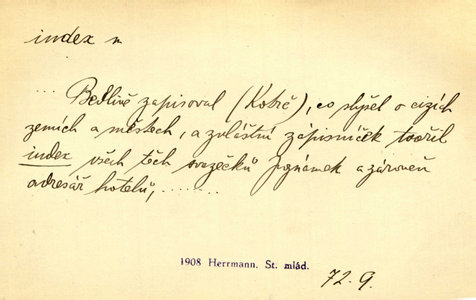 index m
.... Bedlivě zapisoval (Kotrč), co slyšel o cizích
zemích a městech, a zvláštní zápisníček tvořil
index všech těch svazečků poznámek a zároveň
adresář hotelů, .......
1908 Herrmann. St. mlád.
72.9.